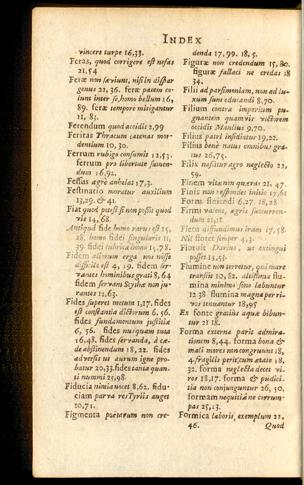 INDEX
vincere turpe 16,33.
Feras, quod corrigere est nefas
21,54
Feræ non sæviunt, nisi in dispar
genus 22,36. feræ pacem
inter se, homo bellum 16,
89. feræ tempore mitigantur
11, 83.
Ferendum quod accidit 2,99
Feritas Thracum catenas mor-
dentium 10,30.
Ferrum rubigo consumit 12,53.
ferrum pro libertate
16,92.
Fessus ægre anhelat 17,3.
Festinatio moratur auxilium
13,29. & 41.
Fiat quod potest si non possis quod
vis 14,68.
Antiqua fide homo rarus est 15,
28. homo fidei singularis 11,
39. fidei lubrica bonitas 1,78.
Fidem alterum erga nos nosse
difficile est 4, 19. fidem ser-
vantes hominibus grati 8,64
fidem servant Scythæ non ju-
rantes 12,63.
Fides superet metum 1,17. fides
est constantia dictorum 6, 56.
fides fundamentum justitiæ
6, 56. fides nusquam tuta
16,48. fides servanda, à cæ-
de abstinendum 18, 22. fides
adversa ut aurum igne pro-
batur 20,33. fides tanta quan-
ti nummi 25,98.
Fiducia nimia nocet 8,62. fidu-
ciam parva res Tyriis auget
20,71.
Figmenta poëtarum non cre-
denda 17,99. 18,5.
Figuræ non credendum 15,80.
figuræ fallaci ne credas 18
34.
Filii ad parsimoniam, non ad lu-
xum sunt educandi 8,70.
Filium contra imperium pu-
gnantem quamvis victorem
occidit Manlius 9,70.
Filius patri infidiatur 19,22.
Filius bene natus omnibus gra-
tus 26,75.
Filix nascitur agro neglecto 22,
59.
Finem vitæ non quæras 21. 47.
respondet initiis 17,61
Formæ 6,27. 18,28
Firmi vacent, ægris succurren-
dum 21,18
Fletu diffundimus iram 17,58.
Nil fletur semper 4,3
Floruit Darius, ut extingui
posset 13,55.
Flumine non terretur, qui mare
transiit 10,82. altissima flu-
mina minimo sono labuntur
12 38 flumina magna per ri-
vos tenuantur 18,95
Ex fonte gratius aquæ bibun-
tur 21 18.
Forma externa parit admira-
tionem 8,44. forma bona &
mali mores non congruunt 18,
4. fragilis peritque ætate 18,
32. forma neglecta decet vi-
ros 18,17. forma & pudici-
tia non conjunguntur 26, 50.
formam nequitiæ ne corrum-
pas 25,13.
Formica laboris exemplum 21,
46.
Quod